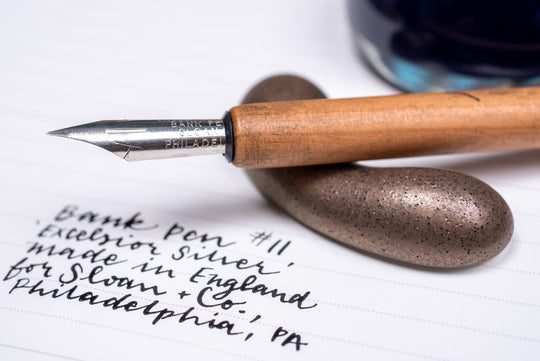 BANK PE
SLOAN
PHILADEL
Bank Pen #11
'Excelsior Silver,'
made in England
for Sloan + Co.,
Philadelphia, PA